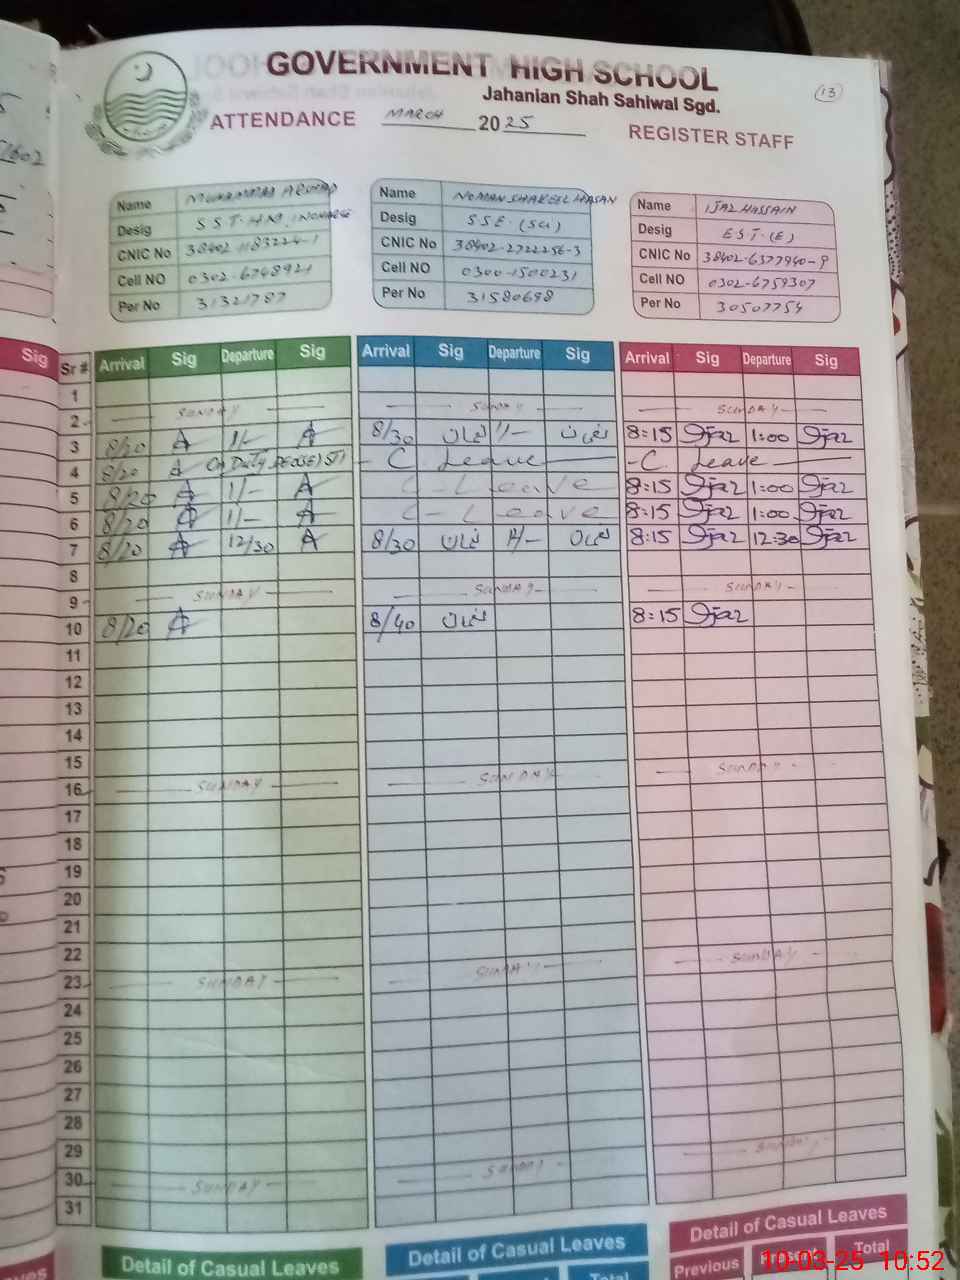 GOVERNMENT HIGH SCHOOL
Jahanian Shah Sahiwal Sgd.
13
ATTENDANCE MARCH 2025 REGISTER STAFF
Name MUHAMMAD ARSHAD
Desig S S T. H.M. INCHARGE
CNIC No 38402-1183224-1
Cell NO 0302-6748921
Per No 31321787
Name NOMAN SHAKEEL HASAN
Desig S S E. (Sci)
CNIC No 38402-2722256-3
Cell NO 0300-1500231
Per No 31580698
Name IJAZ HASSAIN
Desig E S T. (E)
CNIC No 38402-6377940-9
Cell NO 0302-6759307
Per No 30507754
Sig
Sr # Arrival Sig Departure Sig Arrival Sig Departure Sig Arrival Sig Departure Sig
1
2 SUNDAY SUNDAY SUNDAY
3 8/20 A 1/- A 8/30 نعمان 1/- نعمان 8:15 Ijaz 1:00 Ijaz
4 8/20 A On Duty - C. Leave - C. Leave
5 8/20 A 1/- A C - Leave 8:15 Ijaz 1:00 Ijaz
6 8/20 A 1/- A C - Leave 8:15 Ijaz 1:00 Ijaz
7 8/20 A 12/30 A 8/30 نعمان نعمان 8:15 Ijaz 12:30 Ijaz
8
9 SUNDAY SUNDAY SUNDAY
10 8/20 A 8/40 نعمان 8:15 Ijaz
11
12
13
14
15
16 SUNDAY SUNDAY SUNDAY
17
18
19
20
21
22
23 SUNDAY SUNDAY SUNDAY
24
25
26
27
28
29
30 SUNDAY SUNDAY SUNDAY
31
Detail of Casual Leaves Detail of Casual Leaves Detail of Casual Leaves
Total Previous Total
10-03-25 10:52